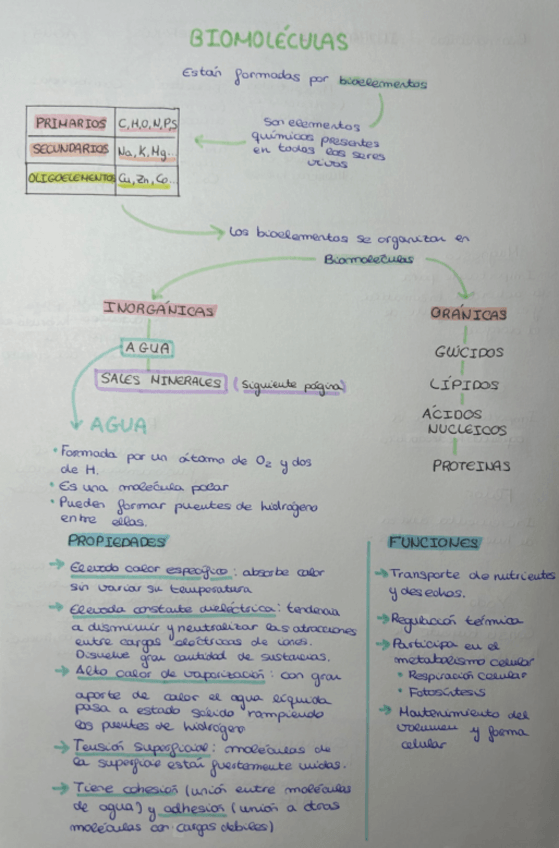 BIOMOLÉCULAS
Están formadas por bioelementos
PRIMARIOS C,H,O,N,P,S
SECUNDARIOS Na, K, Mg...
OLIGOELEMENTOS Cu, Zn, Co...
Son elementos
químicos presentes
en todos los seres
vivos
Los bioelementos se organizan en
Biomoleculas
INORGÁNICAS
AGUA
SALES MINERALES (siguiente página)
ORÁNICAS
GLÚCIDOS
LÍPIDOS
ÁCIDOS
NUCLEICOS
PROTEINAS
AGUA
• Formada por un átomo de O₂ y dos
de H.
• Es una molécula polar
• Pueden formar puentes de hidrógeno
entre ellas.
PROPIEDADES
→ Elevado calor específico: absorbe calor
sin variar su temperatura
→ Elevada constante dieléctrica: tendencia
a disminuir y neutralizar las atracciones
entre cargas eléctricas de iones.
Disuelve gran cantidad de sustancias.
→ Alto calor de vaporización: con gran
aporte de calor el agua líquida
pasa a estado sólido rompiendo
los puentes de hidrógeno
→ Tensión superficial: moléculas de
la superficie están fuertemente unidas.
→ Tiene cohesión (unión entre moléculas
de agua) y adhesión (unión a otras
moléculas con cargas debiles)
FUNCIONES
→ Transporte de nutrientes
y desechos.
→ Regulación térmica
→ Participa en el
metabolismo celular
• Respiración celular
• Fotosíntesis
→ Mantenimiento del
volumen y forma
celular